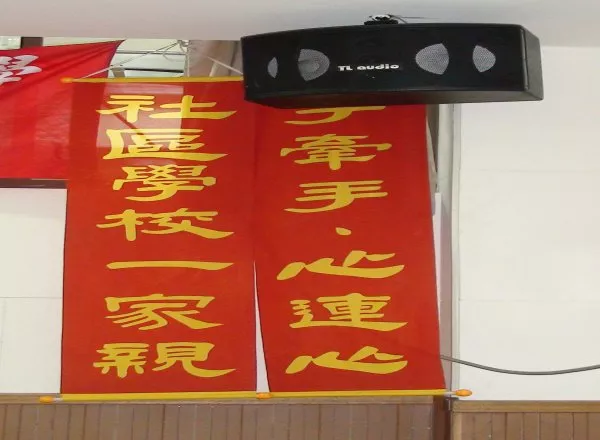 學
TL audio
手牽手、心連心
社區學校一家親